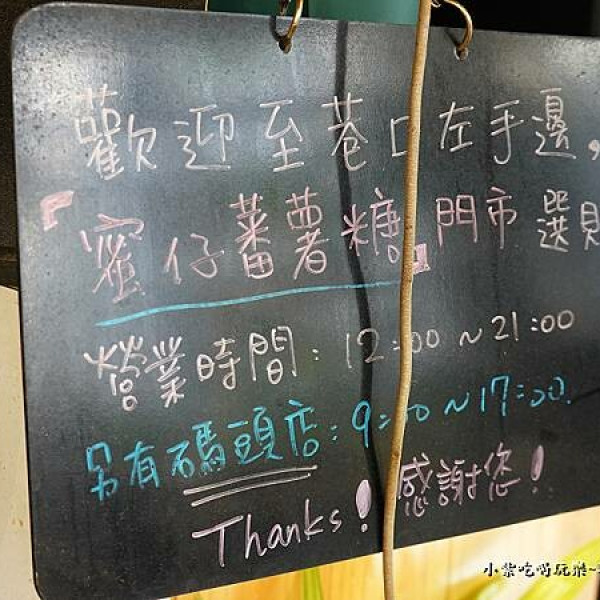 歡迎至巷口左手邊,
『蜜仔蕃薯糖』門市選
營業時間:12:00~21:00
另有碼頭店:9:00~17:00.
Thanks! 感謝您!
小紫吃喝玩樂~